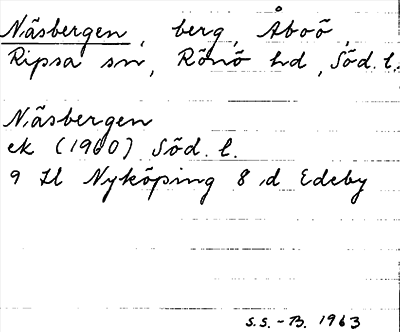 Näsbergen, berg, Åboö,
Ripsa sn, Rönö hd, Söd. l.
Näsbergen
ek (1960) Söd. l.
9 H Nyköping 8 d Edeby
S.S.-B. 1963